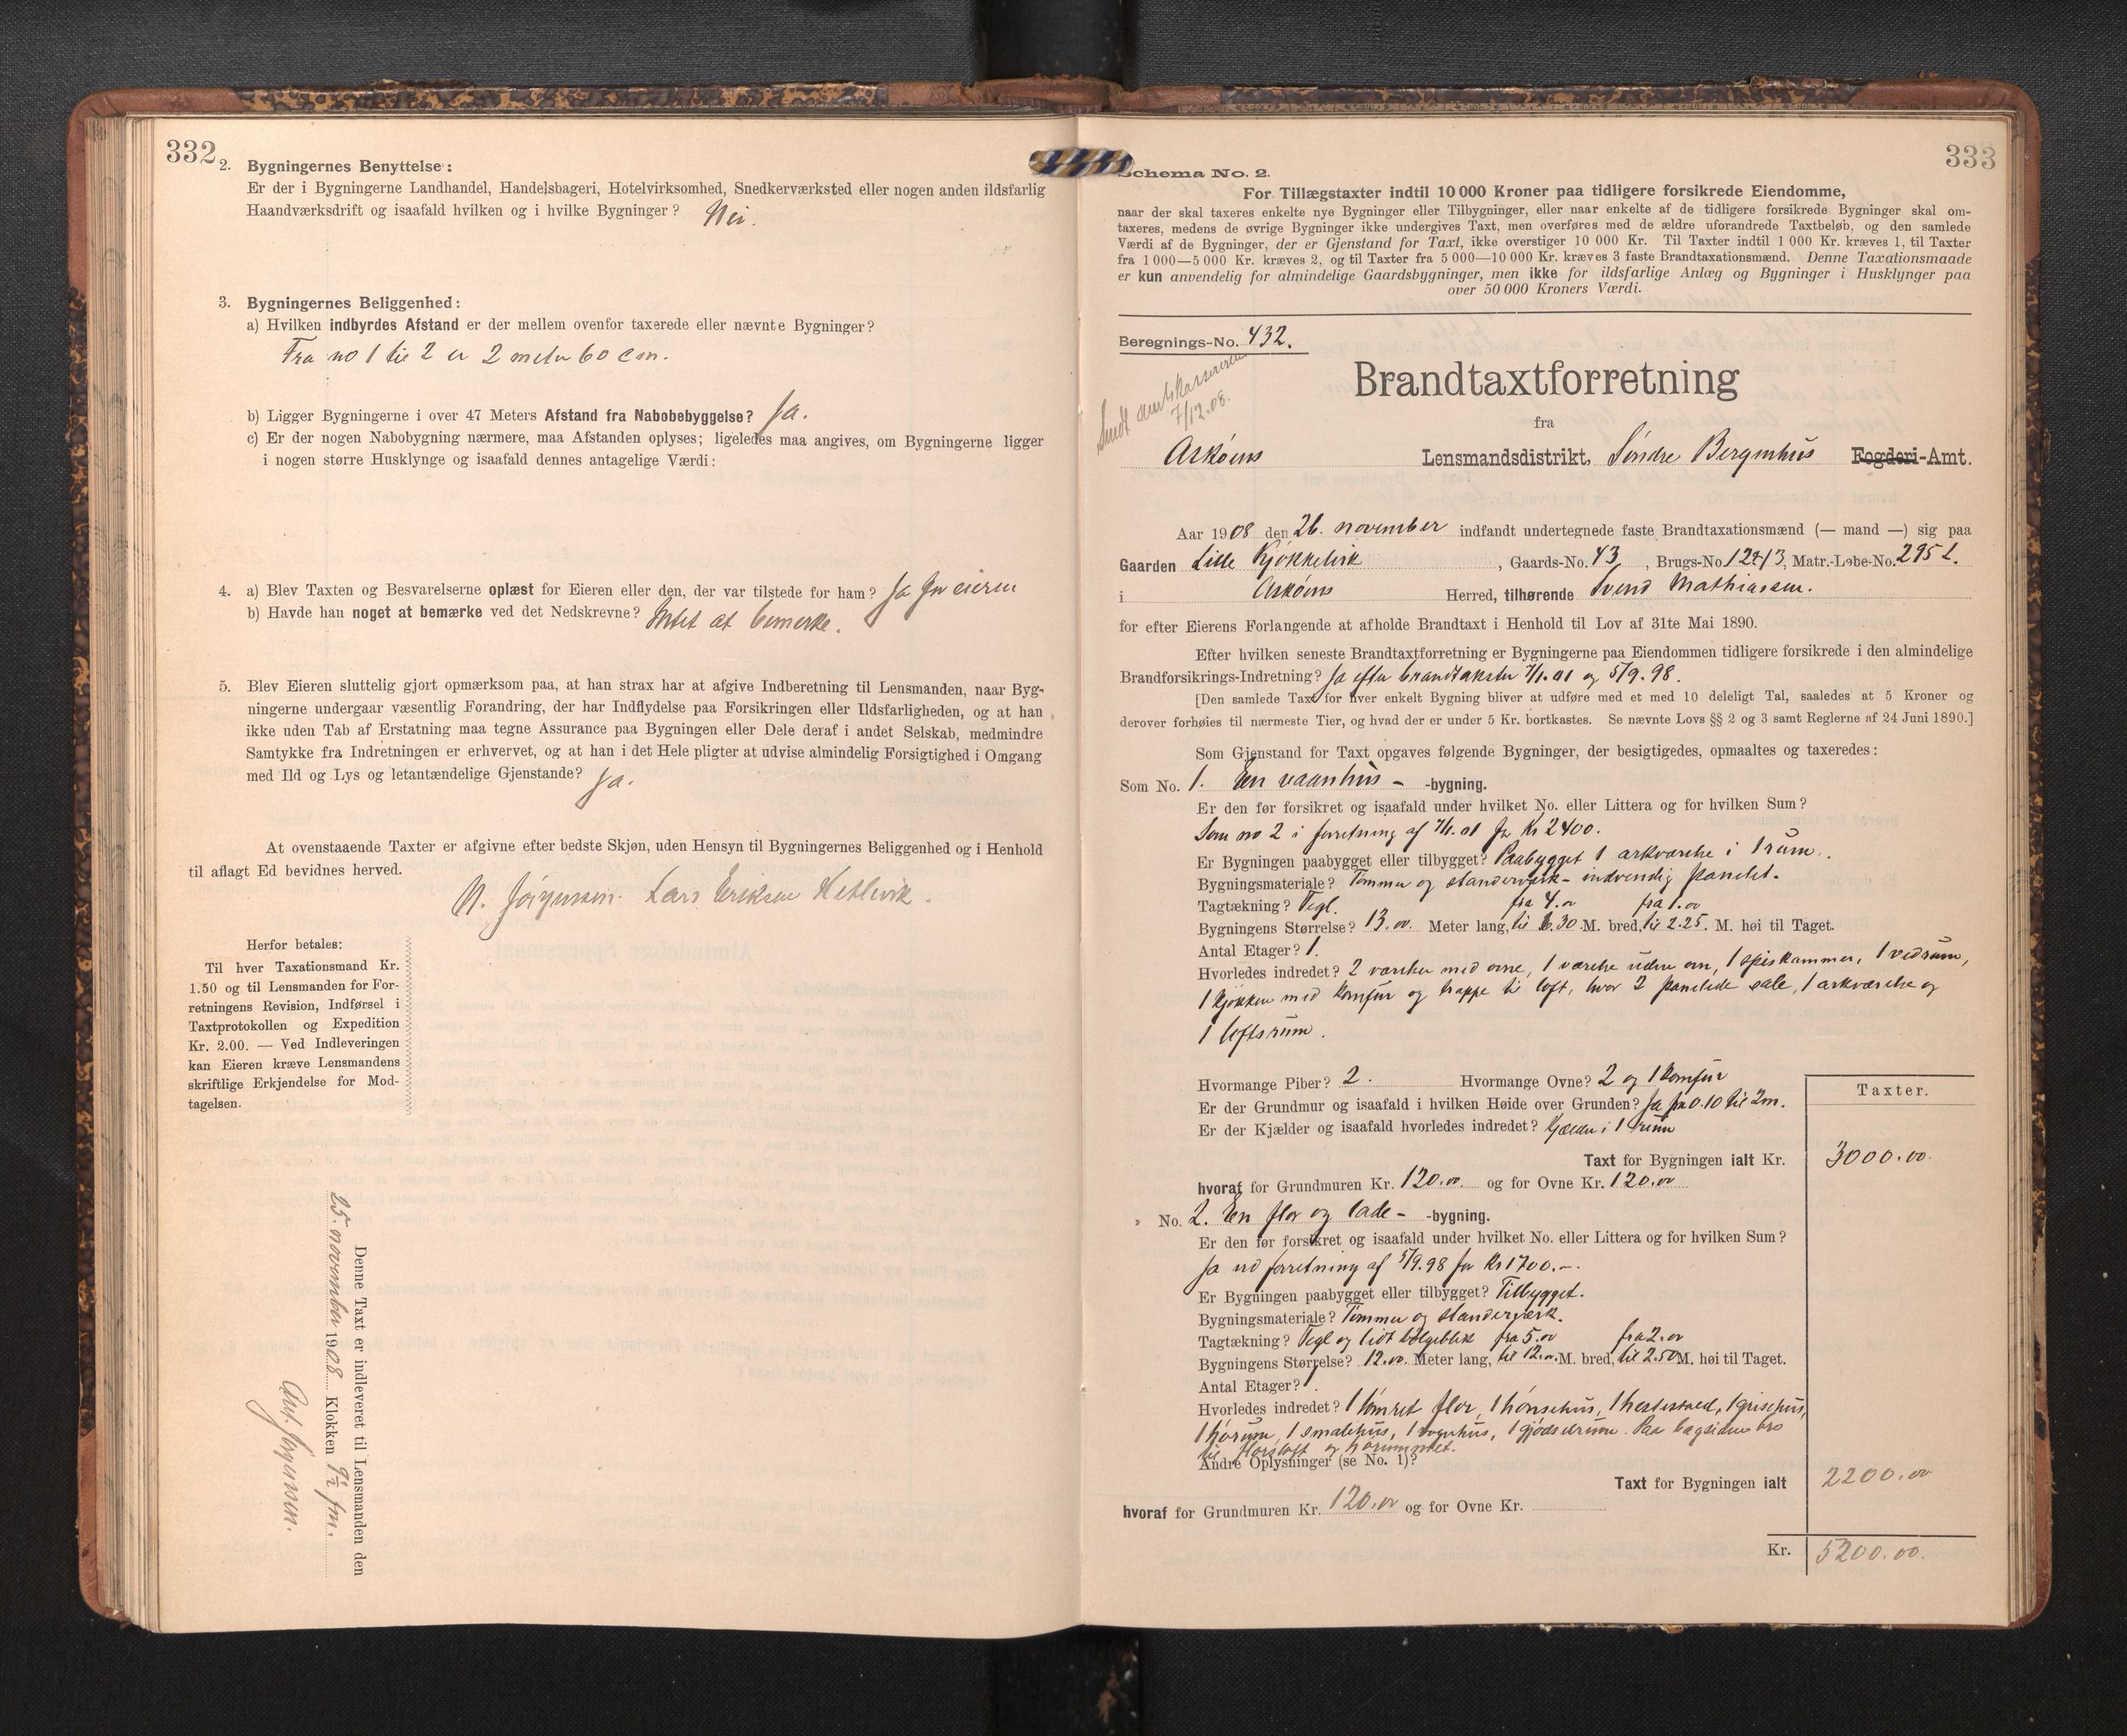 332
2. Bygningernes Benyttelse:
Er der i Bygningerne Landhandel, Handelsbageri, Hotelvirksomhed, Snedkerværksted eller nogen anden ildsfarlig
Haandværksdrift og isaafald hvilken og i hvilke Bygninger? Nei.
3. Bygningernes Beliggenhed:
a) Hvilken indbyrdes Afstand er der mellem ovenfor taxerede eller nævnte Bygninger?
Fra no 1 til 2 er 2 meter 60 cm.
b) Ligger Bygningerne i over 47 Meters Afstand fra Nabobebyggelse? Ja.
c) Er der nogen Nabobygning nærmere, maa Afstanden oplyses; ligeledes maa angives, om Bygningerne ligger
i nogen større Husklynge og isaafald dennes antagelige Værdi:
4. a) Blev Taxten og Besvarelserne oplæst for Eieren eller den, der var tilstede for ham? Ja for eieren
b) Havde han noget at bemærke ved det Nedskrevne? Intet at bemerke.
5. Blev Eieren sluttelig gjort opmærksom paa, at han strax har at afgive Indberetning til Lensmanden, naar Byg-
ningerne undergaar væsentlig Forandring, der har Indflydelse paa Forsikringen eller Ildsfarligheden, og at han
ikke uden Tab af Erstatning maa tegne Assurance paa Bygningen eller Dele deraf i andet Selskab, medmindre
Samtykke fra Indretningen er erhvervet, og at han i det Hele pligter at udvise almindelig Forsigtighed i Omgang
med Ild og Lys og letantændelige Gjenstande? Ja.
At ovenstaaende Taxter er afgivne efter bedste Skjøn, uden Hensyn til Bygningernes Beliggenhed og i Henhold
til aflagt Ed bevidnes herved.
N. Jörgensen. Lars Eriksen Hetlevik.
Herfor betales:
Til hver Taxationsmand Kr.
1.50 og til Lensmanden for For-
retningens Revision, Indførsel i
Taxtprotokollen og Expedition
Kr. 2.00. — Ved Indleveringen
kan Eieren kræve Lensmandens
skriftlige Erkjendelse for Mod-
tagelsen.
Denne Taxt er indleveret til Lensmanden den
25. november 1908 Klokken 9½ fm.
Jörgensen.
333
Schema No. 2.
For Tillægstaxter indtil 10 000 Kroner paa tidligere forsikrede Eiendomme,
naar der skal taxeres enkelte nye Bygninger eller Tilbygninger, eller naar enkelte af de tidligere forsikrede Bygninger skal om-
taxeres, medens de øvrige Bygninger ikke undergives Taxt, men overføres med de ældre uforandrede Taxtbeløb, og den samlede
Værdi af de Bygninger, der er Gjenstand for Taxt, ikke overstiger 10 000 Kr. Til Taxter indtil 1 000 Kr. kræves 1, til Taxter
fra 1 000—5 000 Kr. kræves 2, og til Taxter fra 5 000—10 000 Kr. kræves 3 faste Brandtaxationsmænd. Denne Taxationsmaade
er kun anvendelig for almindelige Gaardsbygninger, men ikke for ildsfarlige Anlæg og Bygninger i Husklynger paa
over 50 000 Kroners Værdi.
Beregnings-No. 432.
Sendt amtskassereren
7/12.08.
Brandtaxtforretning
fra
Askøens Lensmandsdistrikt, Søndre Bergenhus Fogderi-Amt.
Aar 1908 den 26. november indfandt undertegnede faste Brandtaxationsmænd (— mand —) sig paa
Gaarden Lille Kjøkkelvik, Gaards-No. 43, Brugs-No 12+13, Matr.-Løbe-No. 295 b.
i Askøens Herred, tilhørende Svend Mathiassen.
for efter Eierens Forlangende at afholde Brandtaxt i Henhold til Lov af 31te Mai 1890.
Efter hvilken seneste Brandtaxtforretning er Bygningerne paa Eiendommen tidligere forsikrede i den almindelige
Brandforsikrings-Indretning? Ja efter brandtakster 7/1.01 og 5/9.98.
[Den samlede Taxt for hver enkelt Bygning bliver at udføre med et med 10 deleligt Tal, saaledes at 5 Kroner og
derover forhøies til nærmeste Tier, og hvad der er under 5 Kr. bortkastes. Se nævnte Lovs §§ 2 og 3 samt Reglerne af 24 Juni 1890.]
Som Gjenstand for Taxt opgaves følgende Bygninger, der besigtigedes, opmaaltes og taxeredes:
Som No. 1. En vaanhus- -bygning.
Er den før forsikret og isaafald under hvilket No. eller Littera og for hvilken Sum?
Som no 2 i forretning af 7/1.01 for Kr 2400.
Er Bygningen paabygget eller tilbygget? Paabygget 1 arkværelse i 1 rum.
Bygningsmateriale? Tømmer og standerværk - indvendig panelet.
Tagtækning? Tegl. fra 4.00 fra 1.00
Bygningens Størrelse? 13.00. Meter lang, til 6.30 M. bred, til 2.25. M. høi til Taget.
Antal Etager? 1.
Hvorledes indredet? 2 værelser med ovne, 1 værelse uden ovn, 1 spiskammer, 1 vedrum,
1 kjøkken med komfur og trappe til loft, hvor 2 panelede sale, 1 arkværelse og
1 loftsrum.
Hvormange Piber? 2. Hvormange Ovne? 2 og 1 komfur
Er der Grundmur og isaafald i hvilken Høide over Grunden? Ja fra 0.10 til 2m.
Er der Kjælder og isaafald hvorledes indredet? Kjælder i 1 rum
Taxter.
Taxt for Bygningen ialt Kr. 3000.00.
hvoraf for Grundmuren Kr. 120.00 og for Ovne Kr. 120.00
» No. 2. En flor og lade- -bygning.
Er den før forsikret og isaafald under hvilket No. eller Littera og for hvilken Sum?
Ja ved forretning af 5/9.98 for Kr 1700.-.
Er Bygningen paabygget eller tilbygget? Tilbygget.
Bygningsmateriale? Tømmer og standerværk.
Tagtækning? Tegl og lidt bølgeblik fra 5.00 fra 2.00
Bygningens Størrelse? 12.00. Meter lang, til 12.00. M. bred, til 2.50 M. høi til Taget.
Antal Etager? 1.
Hvorledes indredet? 1 tømret flor, 1 hønsehus, 1 hestestald, 1 grisehus,
1 hørum, 1 smalehus, 1 vognhus, 1 gjødselrum. Paa bagsiden bro
til florsloft og hørummet.
Andre Oplysninger (se No. 1)?
Taxt for Bygningen ialt 2200.00
hvoraf for Grundmuren Kr. 120.00 og for Ovne Kr.
Kr. 5200.00.